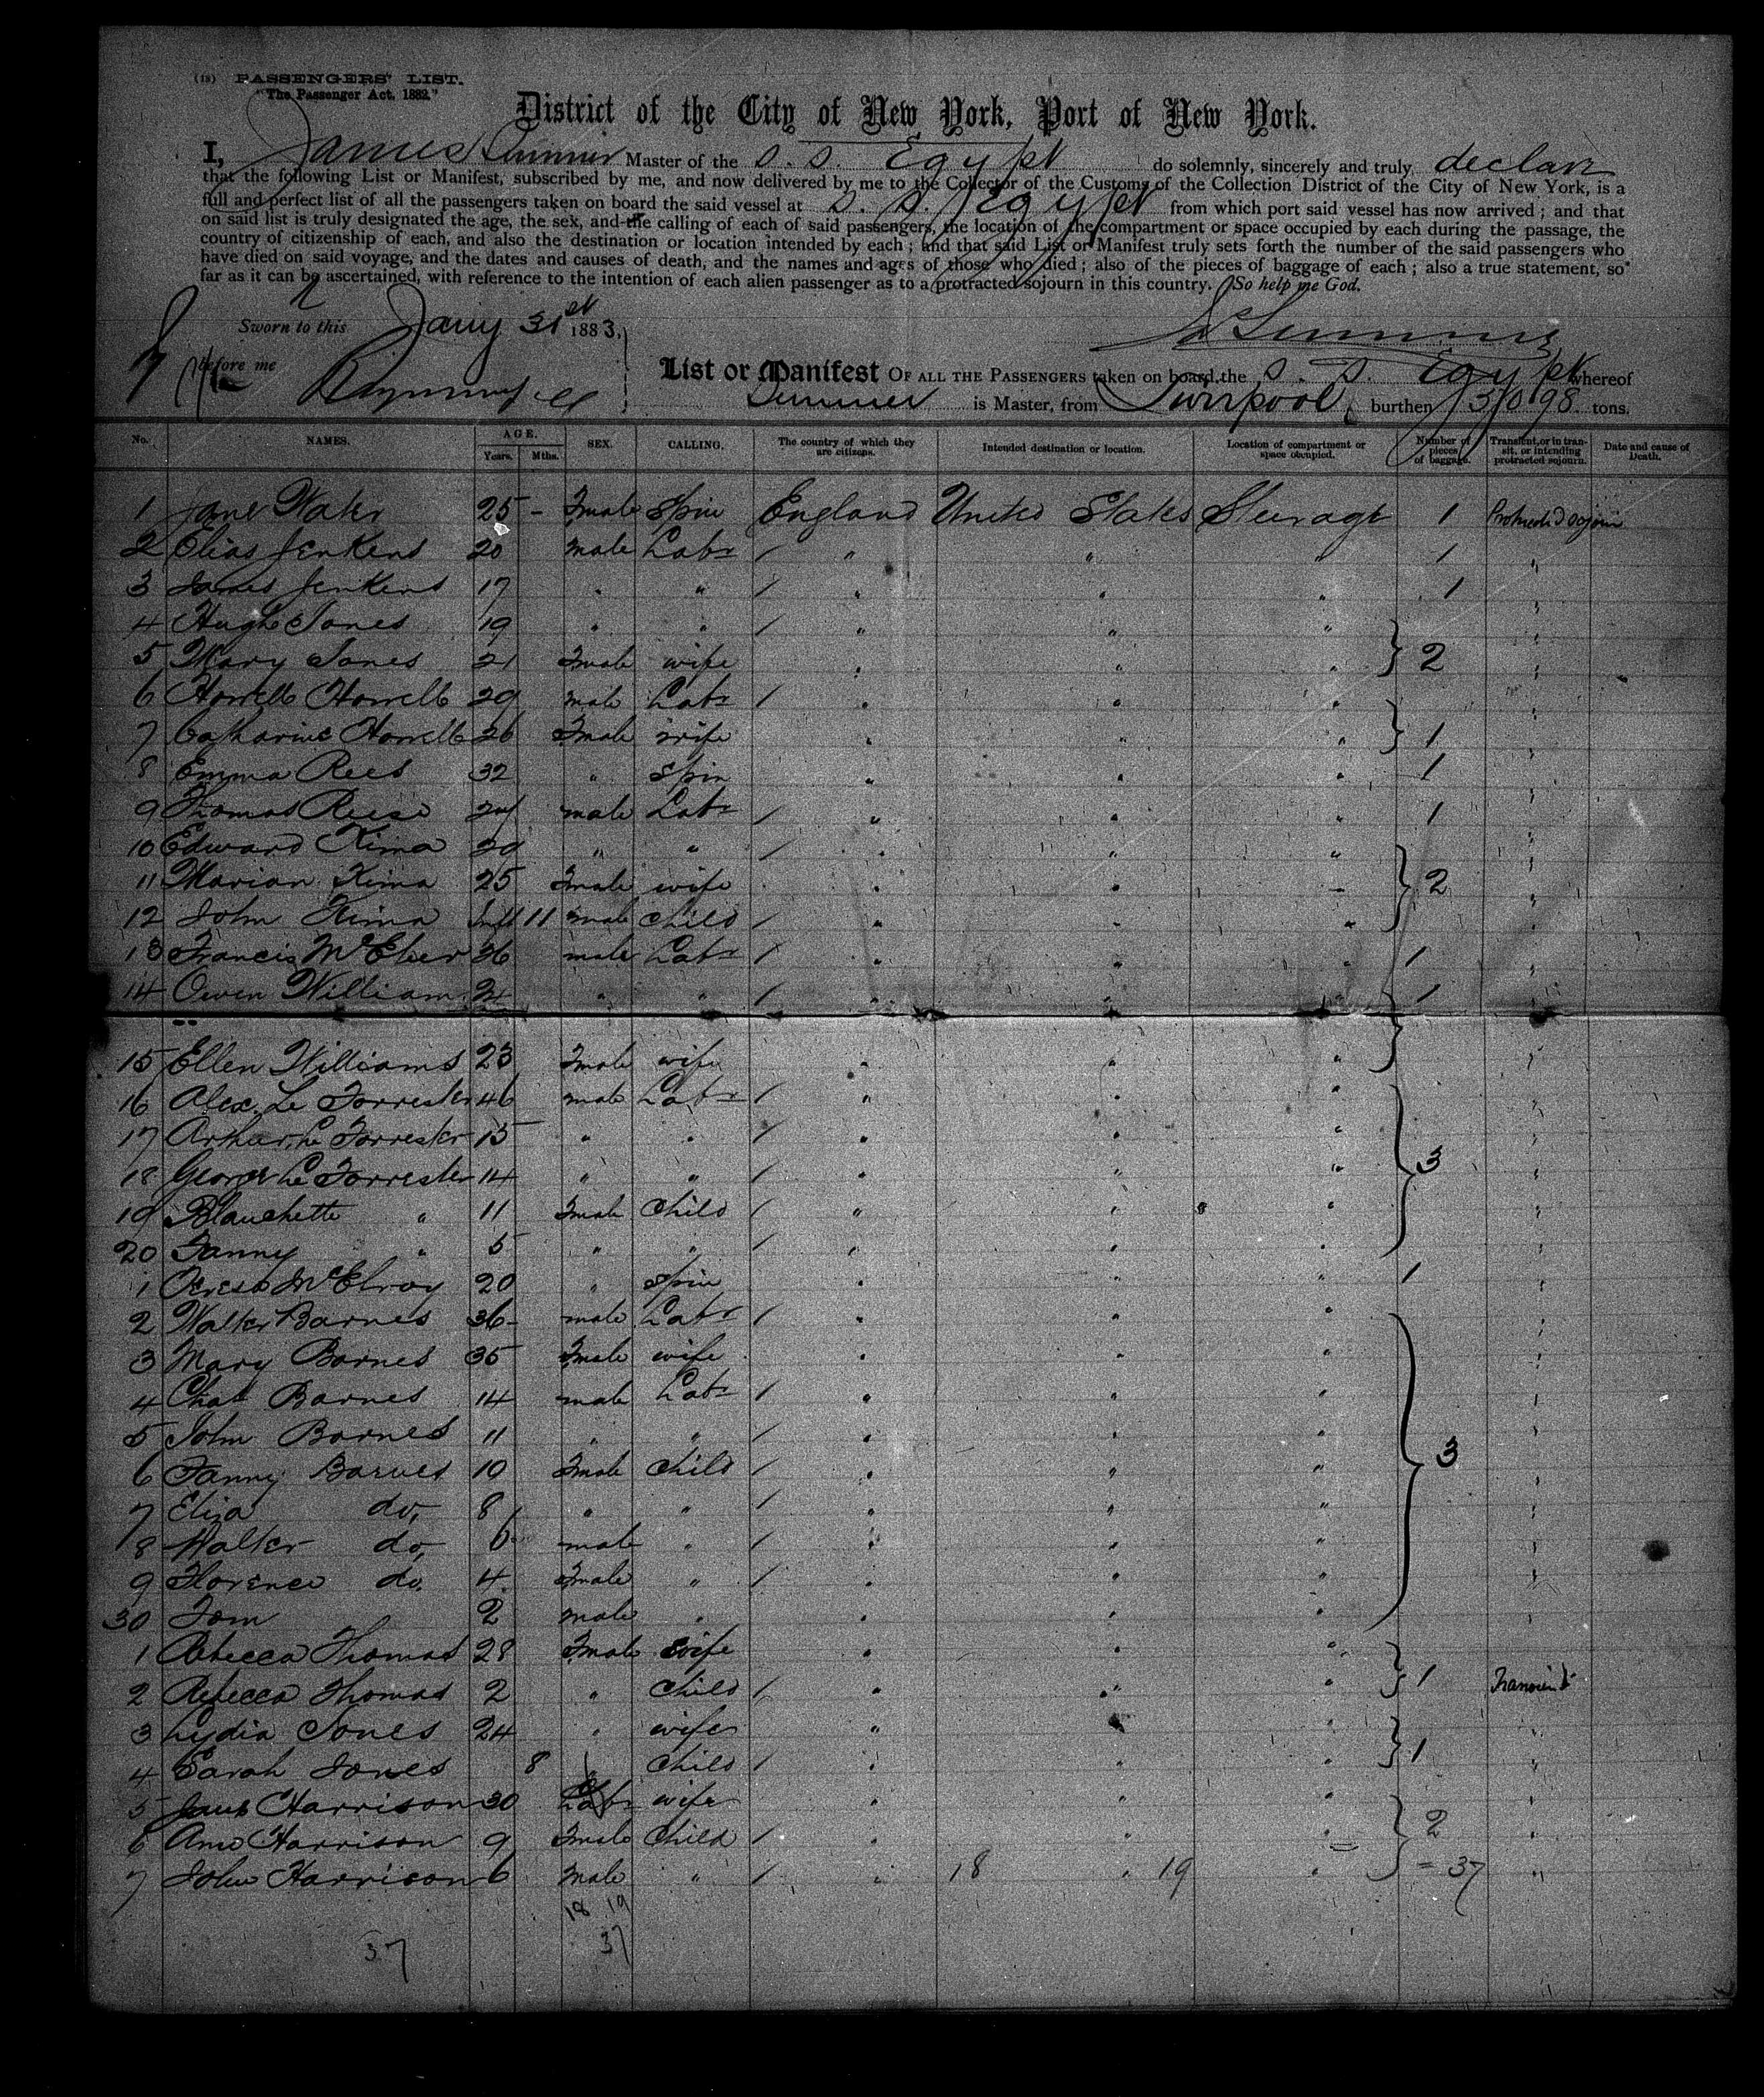 (13) PASSENGERS' LIST.
"The Passenger Act, 1882."
District of the City of New York, Port of New York.
I, James Sumner Master of the S. S. Egypt do solemnly, sincerely and truly declare
that the following List or Manifest, subscribed by me, and now delivered by me to the Collector of the Customs of the Collection District of the City of New York, is a
full and perfect list of all the passengers taken on board the said vessel at S. S. Egypt from which port said vessel has now arrived; and that
on said list is truly designated the age, the sex, and the calling of each of said passengers, the location of the compartment or space occupied by each during the passage, the
country of citizenship of each, and also the destination or location intended by each; and that said List or Manifest truly sets forth the number of the said passengers who
have died on said voyage, and the dates and causes of death, and the names and ages of those who died; also of the pieces of baggage of each; also a true statement, so
far as it can be ascertained, with reference to the intention of each alien passenger as to a protracted sojourn in this country. So help me God.
Sworn to this Jany 31st 1883, J Sumner
before me
List or Manifest OF ALL THE PASSENGERS taken on board the S. S. Egypt whereof
Sumner is Master, from Liverpool, burthen 3098 tons.
No. NAMES. AGE. Years. Mths. SEX. CALLING. The country of which they are citizens. Intended destination or location. Location of compartment or space occupied. Number of pieces of baggage. Transient, or in transit, or intending protracted sojourn. Date and cause of Death.
1 Jane 25 - Fmale Spin England United States Steerage 1 Protracted Sojourn
2 Elias Jenkens 20 male Labr / " " " 1 "
3 James Jenkens 17 " " / " " " 1 "
4 Hugh Jones 19 " " / " " " "
5 Mary Jones 21 Fmale wife " " " } 2 "
6 Howell Howell 29 male Labr / " " " "
7 Catharine Howell 26 Fmale wife " " " } 1 "
8 Emma Rees 32 " Spin " " " 1 "
9 Thomas Reese 24 male Labr / " " " 1 "
10 Edward Kima 29 " " / " " " "
11 Marian Kima 25 Fmale wife " " " } 2 "
12 John Kima Inft 11 male child / " " " "
13 Francis 36 male Labr / " " " 1 "
14 Owen William 24 " " / " " " 1 "
15 Ellen Williams 23 Fmale wife " " " } "
16 Alex. Le Forrester 46 male Labr / " " " "
17 Arthur Le Forrester 15 " " / " " " "
18 George Le Forrester 14 " " / " " " } 3 "
19 Blanchette " 11 Fmale Child / " " " "
20 Fanny " 5 " " / " " " "
1 McElroy 20 " Spin " " " 1 "
2 Walter Barnes 36 male Labr / " " " "
3 Mary Barnes 35 Fmale wife " " " "
4 Chas Barnes 14 male Labr / " " " "
5 John Barnes 11 " " / " " " "
6 Fanny Barnes 10 Fmale Child / " " " } 3 "
7 Eliza do, 8 " " / " " " "
8 Walter do, 6 male " / " " " "
9 Florence do, 4 Fmale " / " " " "
30 Tom 2 male " " " " "
1 Rebecca Thomas 28 Fmale wife " " "
2 Rebecca Thomas 2 " Child / " " " } 1 Transient
3 Lydia Jones 24 " wife " " " "
4 Sarah Jones 8 " Child / " " " } 1 "
5 Jane Harrison 30 Labr wife " " " "
6 Ann Harrison 9 Fmale Child / " " " } 2 "
7 John Harrison 6 male " / " 18 " 19 " = 37 "
18 19
37 37